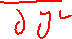 ∂y²